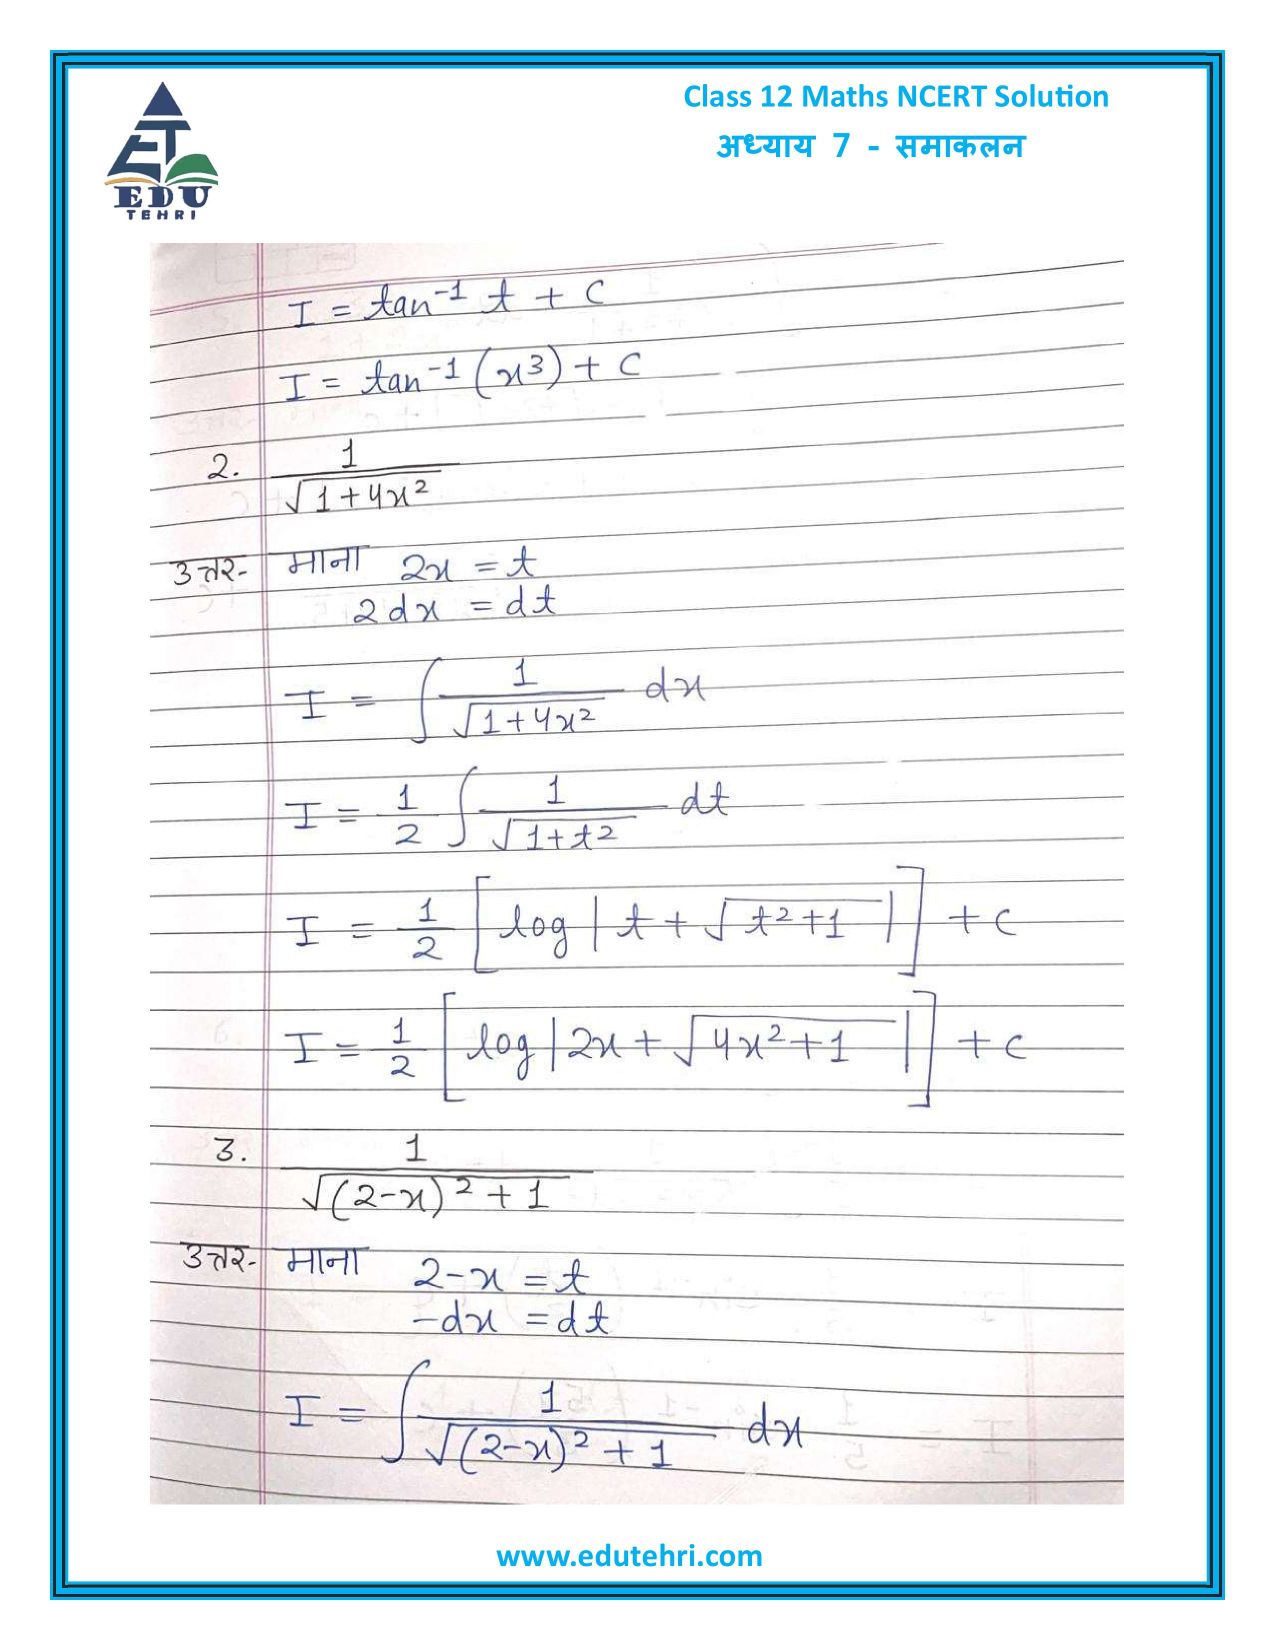 Class 12 Maths NCERT Solution
अध्याय 7 - समाकलन
EDU
TEHRI
I = tan⁻¹ t + c
I = tan⁻¹ (x³) + c
2. 1/√(1+4x²)
उत्तर- माना 2x = t
2dx = dt
I = ∫ 1/√(1+4x²) dx
I = 1/2 ∫ 1/√(1+t²) dt
I = 1/2 [log |t + √(t²+1)|] + c
I = 1/2 [log |2x + √(4x²+1)|] + c
3. 1/√((2-x)²+1)
उत्तर- माना 2-x = t
-dx = dt
I = ∫ 1/√((2-x)²+1) dx
www.edutehri.com